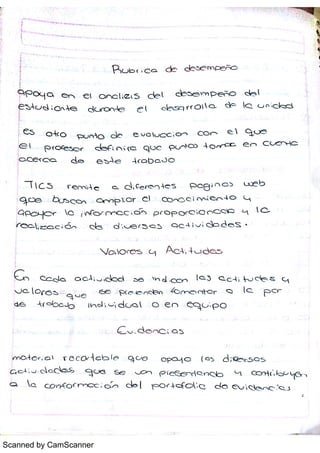 Rubrica de desempeño
apoya en el analisis del desempeño del
estudiante durante el desarrollo de la unidad
es otro punto de evoluccion con el que
el profesor definira que puntos tomar en cuenta
acerca de este trabajo
TICS remite a diferentes paginas web
que buscan ampliar el conocimiento y
apoyar la información proporcionada y la
realización de diversas actividades.
Valores y Actitudes
En cada actividad se indican las actitudes y
valores que se pretenden fomentar a la par
de trabajo individual o en equipo
Evidencias
material recortable que apoya las diversas
actividades que se van presentando y contribuyen
a la conformación del portafolio de evidencias
Scanned by CamScanner